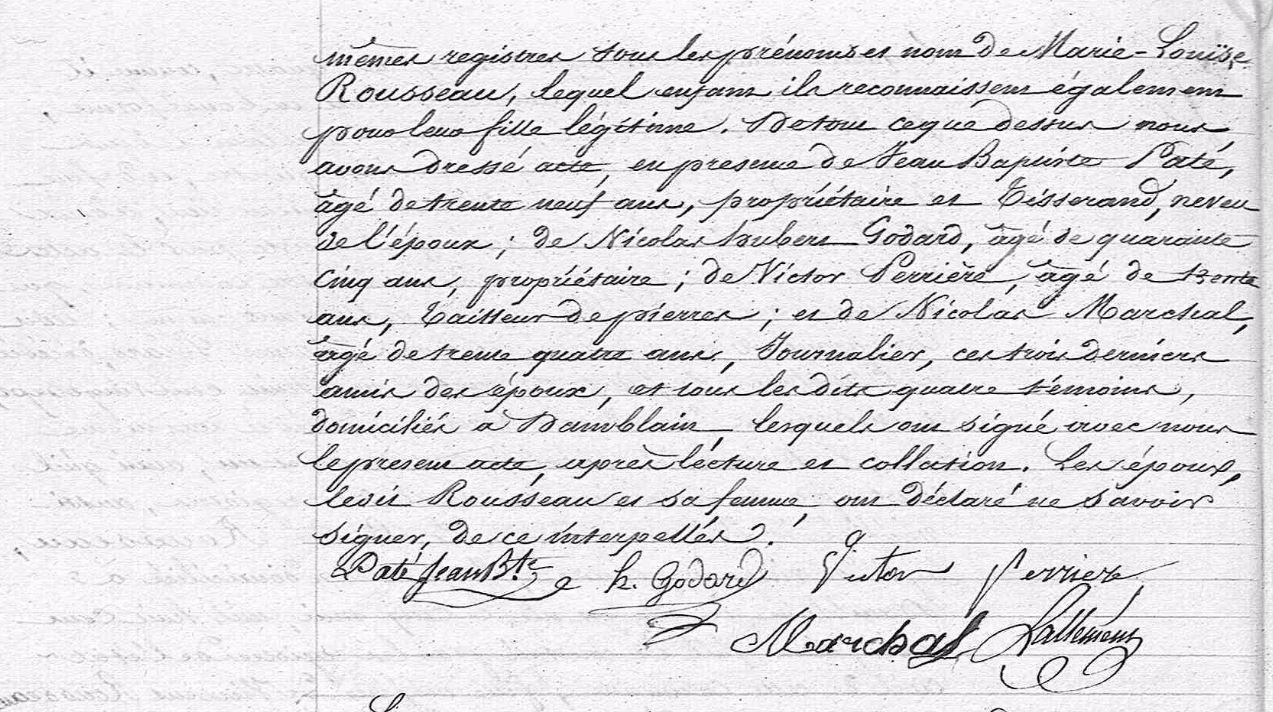 mêmes registres sous les prénoms et nom de Marie-Louise
Rousseau, lequel enfant ils reconnaissent également
pour leur fille légitime. De tout ce que dessus nous
avons dressé acte, en presence de Jean Baptiste Paté,
âgé de trente neuf ans, propriétaire et Tisserand, neveu
de l'époux; de Nicolas hubert Godard, âgé de quarante
cinq ans, propriétaire; de Victor Perrière, âgé de trente
ans, Tailleur de pierres; et de Nicolas Marchal,
âgé de trente quatre ans, Journalier, ces trois derniers
amis des époux, et tous les dits quatre témoins,
domiciliés à Damblain, lesquels ont signé avec nous
le present acte, après lecture et collation. Les époux,
ledit Rousseau et sa femme, ont déclaré ne savoir
signer, de ce interpellés.
Paté Jean Bte h. Godard Victor Perriere
Marchal Lallement